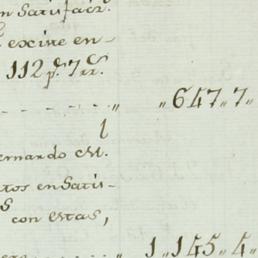 en Satisfacz.
existe en-
112 p.s 7 rr.
" " 647 " 7 "
l
ernando M.
tos en Satis-
con estas,
1 " 145 " 4 "